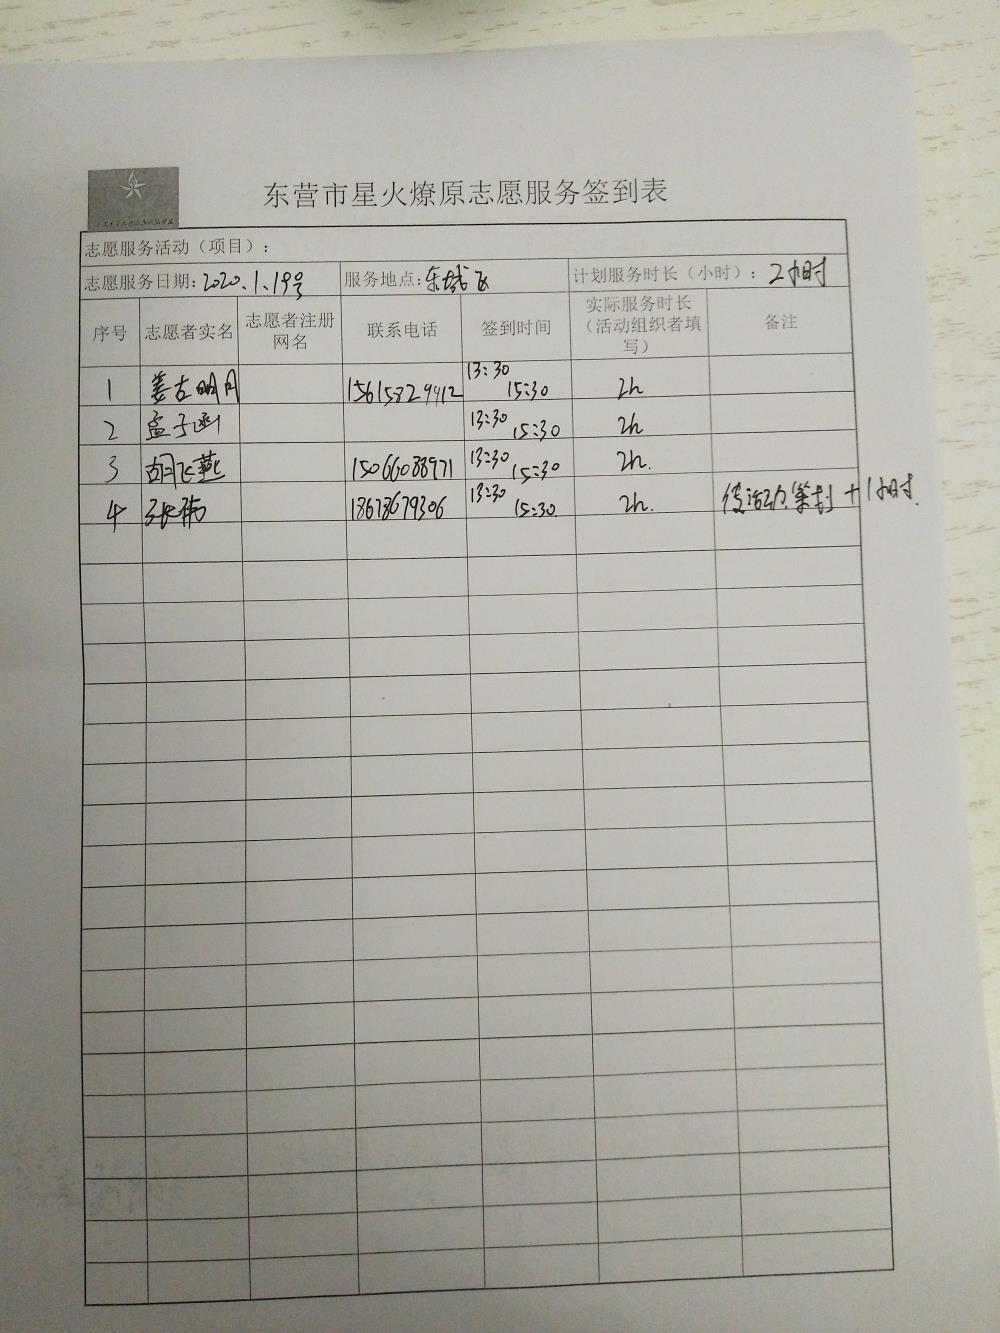 东营市星火燎原志愿服务签到表
志愿服务活动（项目）：
志愿服务日期: 2020.1.19号 服务地点: 东城区 计划服务时长（小时）: 2小时
序号 志愿者实名 志愿者注册网名 联系电话 签到时间 实际服务时长（活动组织者填写） 备注
1 姜古明月 15615829412 13:30 15:30 2h
2 孟子函 13:30 15:30 2h
3 胡飞燕 15066088971 13:30 15:30 2h.
4 张伟 18678679306 13:30 15:30. 2h. 活动策划 +1小时.